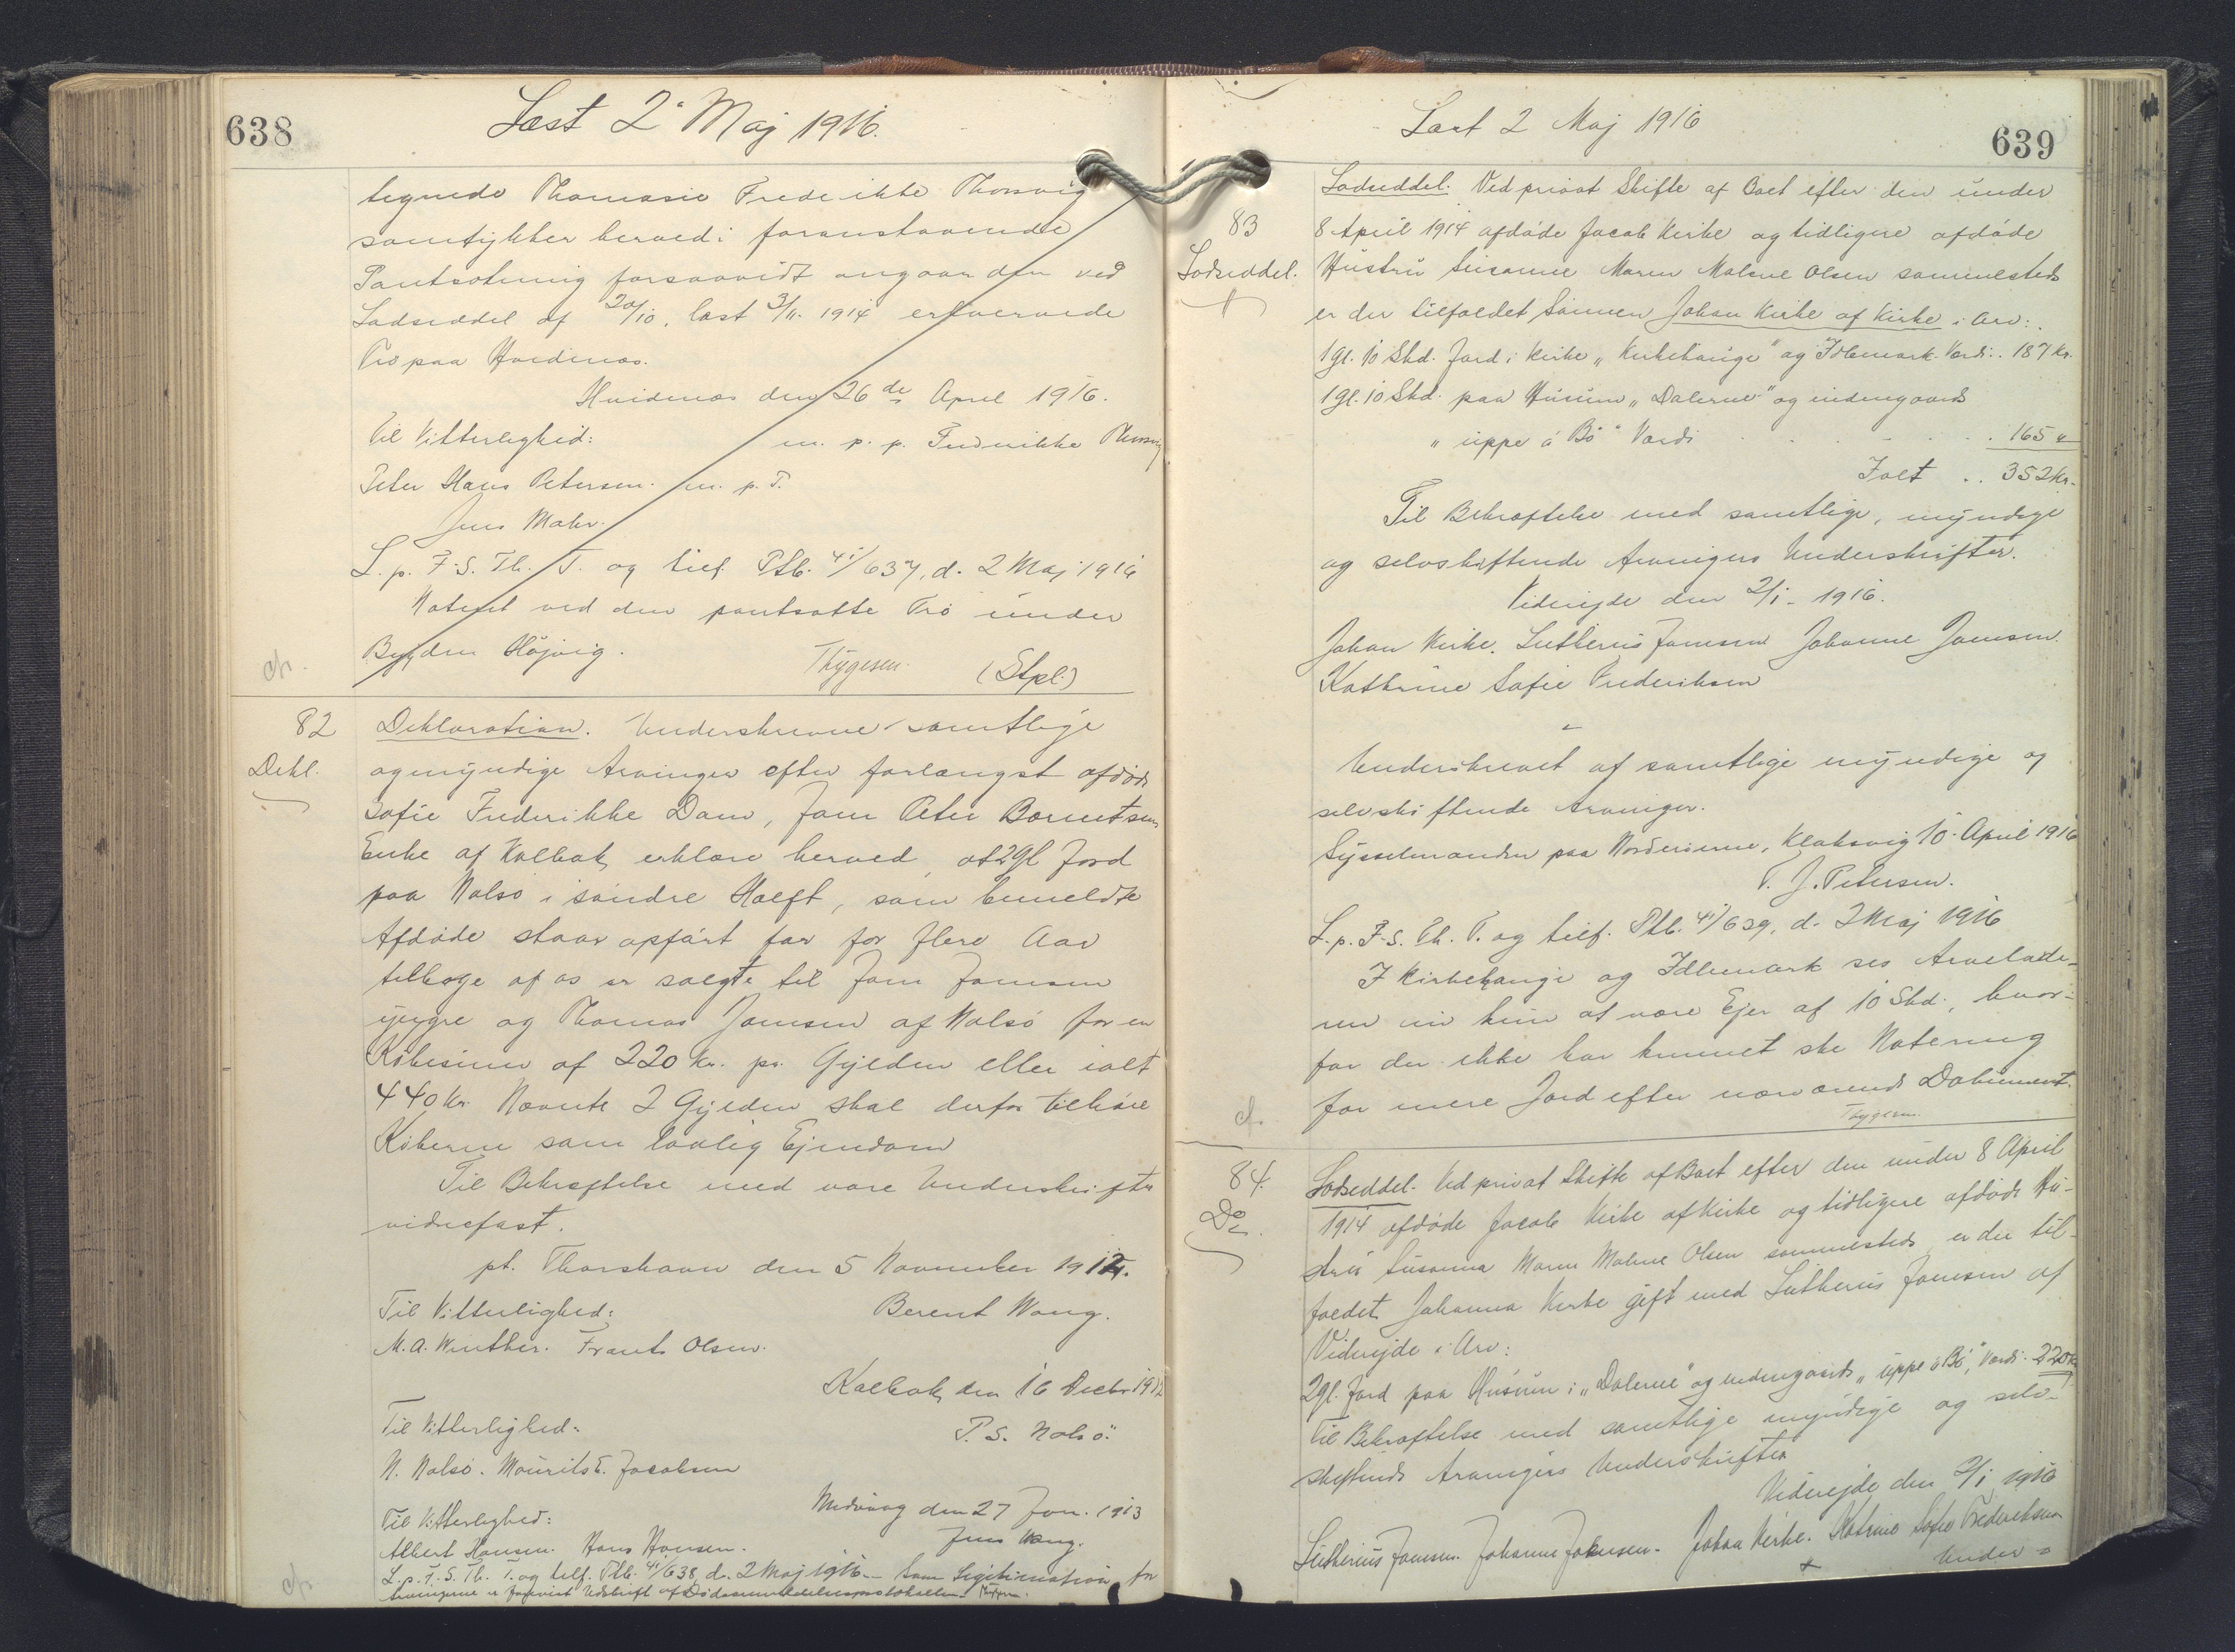 638
Læst 2' Maj 1916.
tegnede Thomasie Frederikke Thorsvig
samtykker herved i foranstaaende
Pantsætning forsaavidt angaar den ved
Lodseddel af 20/10, læst 3/11. 1914 erhvervede
Trø paa Hvidenæs.
Hvidenæs den 26de April 1916.
Til Vitterlighed: m. p. p. Frederikke Thorsvig
Peter Hans Petersen. m. p. P.
Jens Mohr.
L. p. F. S. Th. T. og tilf. Ptb. 41/637, d. 2 Maj 1916
Noteret ved den pantsatte Trø under
Bygden Højvig.
Thygesen. (Stpl.)
82
Dekl.
Deklaration. Underskrevne samtlige
og myndige Arvinger efter forlængst afdøde
Sofie Frederikke Dam, Joen Peter Berentsens
Enke af Kalbak erklære herved, at 2 Gl Jord
paa Nolsø i søndre Halft, som bemeldte
Afdøde staar opført for for flere Aar
tilbage af os er solgt til Joen Joensen
yngre og Thomas Joensen af Nolsø for en
Købesum af 220 Kr. pr. Gylden eller ialt
440 Kr. Nævnte 2 Gylden skal derfor tilhøre
Køberne som lovlig Ejendom
Til Bekræftelse med vore Underskrifter
vidnefast.
pt. Thorshavn den 5 November 1912.
Til Vitterlighed: Berent Wang.
M. A. Winther. Frants Olsen.
Kalbak den 16 Decbr 1912
Til Vitterlighed: P. S. Nolsö.
N. Nolsö. Mourits E. Jacobsen
Midvaag den 27 Jan. 1913
Til Vitterlighed: Jens Wang.
Albert Hansen. Hans Hansen.
L. p. F. S. Th. T. og tilf. Ptb. 41/638, d. 2 Maj 1916. – Som Legitimation for
Arvingerne er forevist Udskrift af Dødsanmeldelsesprotokollen. Thygesen.
Læst 2 Maj 1916
639
83
Lodseddel.
Lodseddel. Ved privat Skifte af Boet efter den under
8 April 1914 afdøde Jacob Kirke og tidligere afdøde
Hustru Susanne Maren Malene Olsen sammesteds
er der tilfaldet Sønnen Johan Kirke af Kirke i Arv:
1 gl. 10 Skd. Jord i Kirke "Kirkehauge" og Idlemark. Værdi .. 187 Kr.
1 gl. 10 Skd. paa Husum "Dalerne" og indengaards
"uppe á Bö" Værdi . . . . . . . 165 "
Ialt .. 352 Kr.
Til Bekræftelse med samtlige, myndige
og selvskiftende Arvingers Underskrifter.
Viderejde den 2/1 - 1916.
Johan Kirke. Lutherus Joensen Johanne Joensen.
Kathrine Sofie Frederiksen
Underskrevet af samtlige myndige og
selvskiftende Arvinger.
Sysselmanden paa Norderøerne, Klaksvig 10. April 1916
P. J. Petersen.
L. p. F. S. Th. T. og tilf. Ptb. 41/639, d. 2 Maj 1916
I Kirkehauge og Idlemark ses Arvelade-
ren nu kun at være Ejer af 10 Skd., hvor-
for der ikke har kunnet ske Notering
for mere Jord efter nærværende Dokument.
Thygesen.
84.
Do.
Lodseddel. Ved privat Skifte af Boet efter den under 8 April
1914 afdøde Jacob Kirke af Kirke og tidligere afdøde Hu-
stru Susanna Maren Malene Olsen sammesteds er der til-
faldet Johanna Kirke gift med Lutherus Joensen af
Viderejde i Arv:
2 gl. Jord paa Husum i "Dalerne" og indengaards "uppe á Bö", Værdi. 220 Kr
Til Bekræftelse med samtlige myndige og selv-
skiftende Arvingers Underskrifter
Viderejde den 2/1 1916
Lutherus Joensen. Johanne Joensen. Johan Kirke. Katrine Sofie Frederiksen
Under=